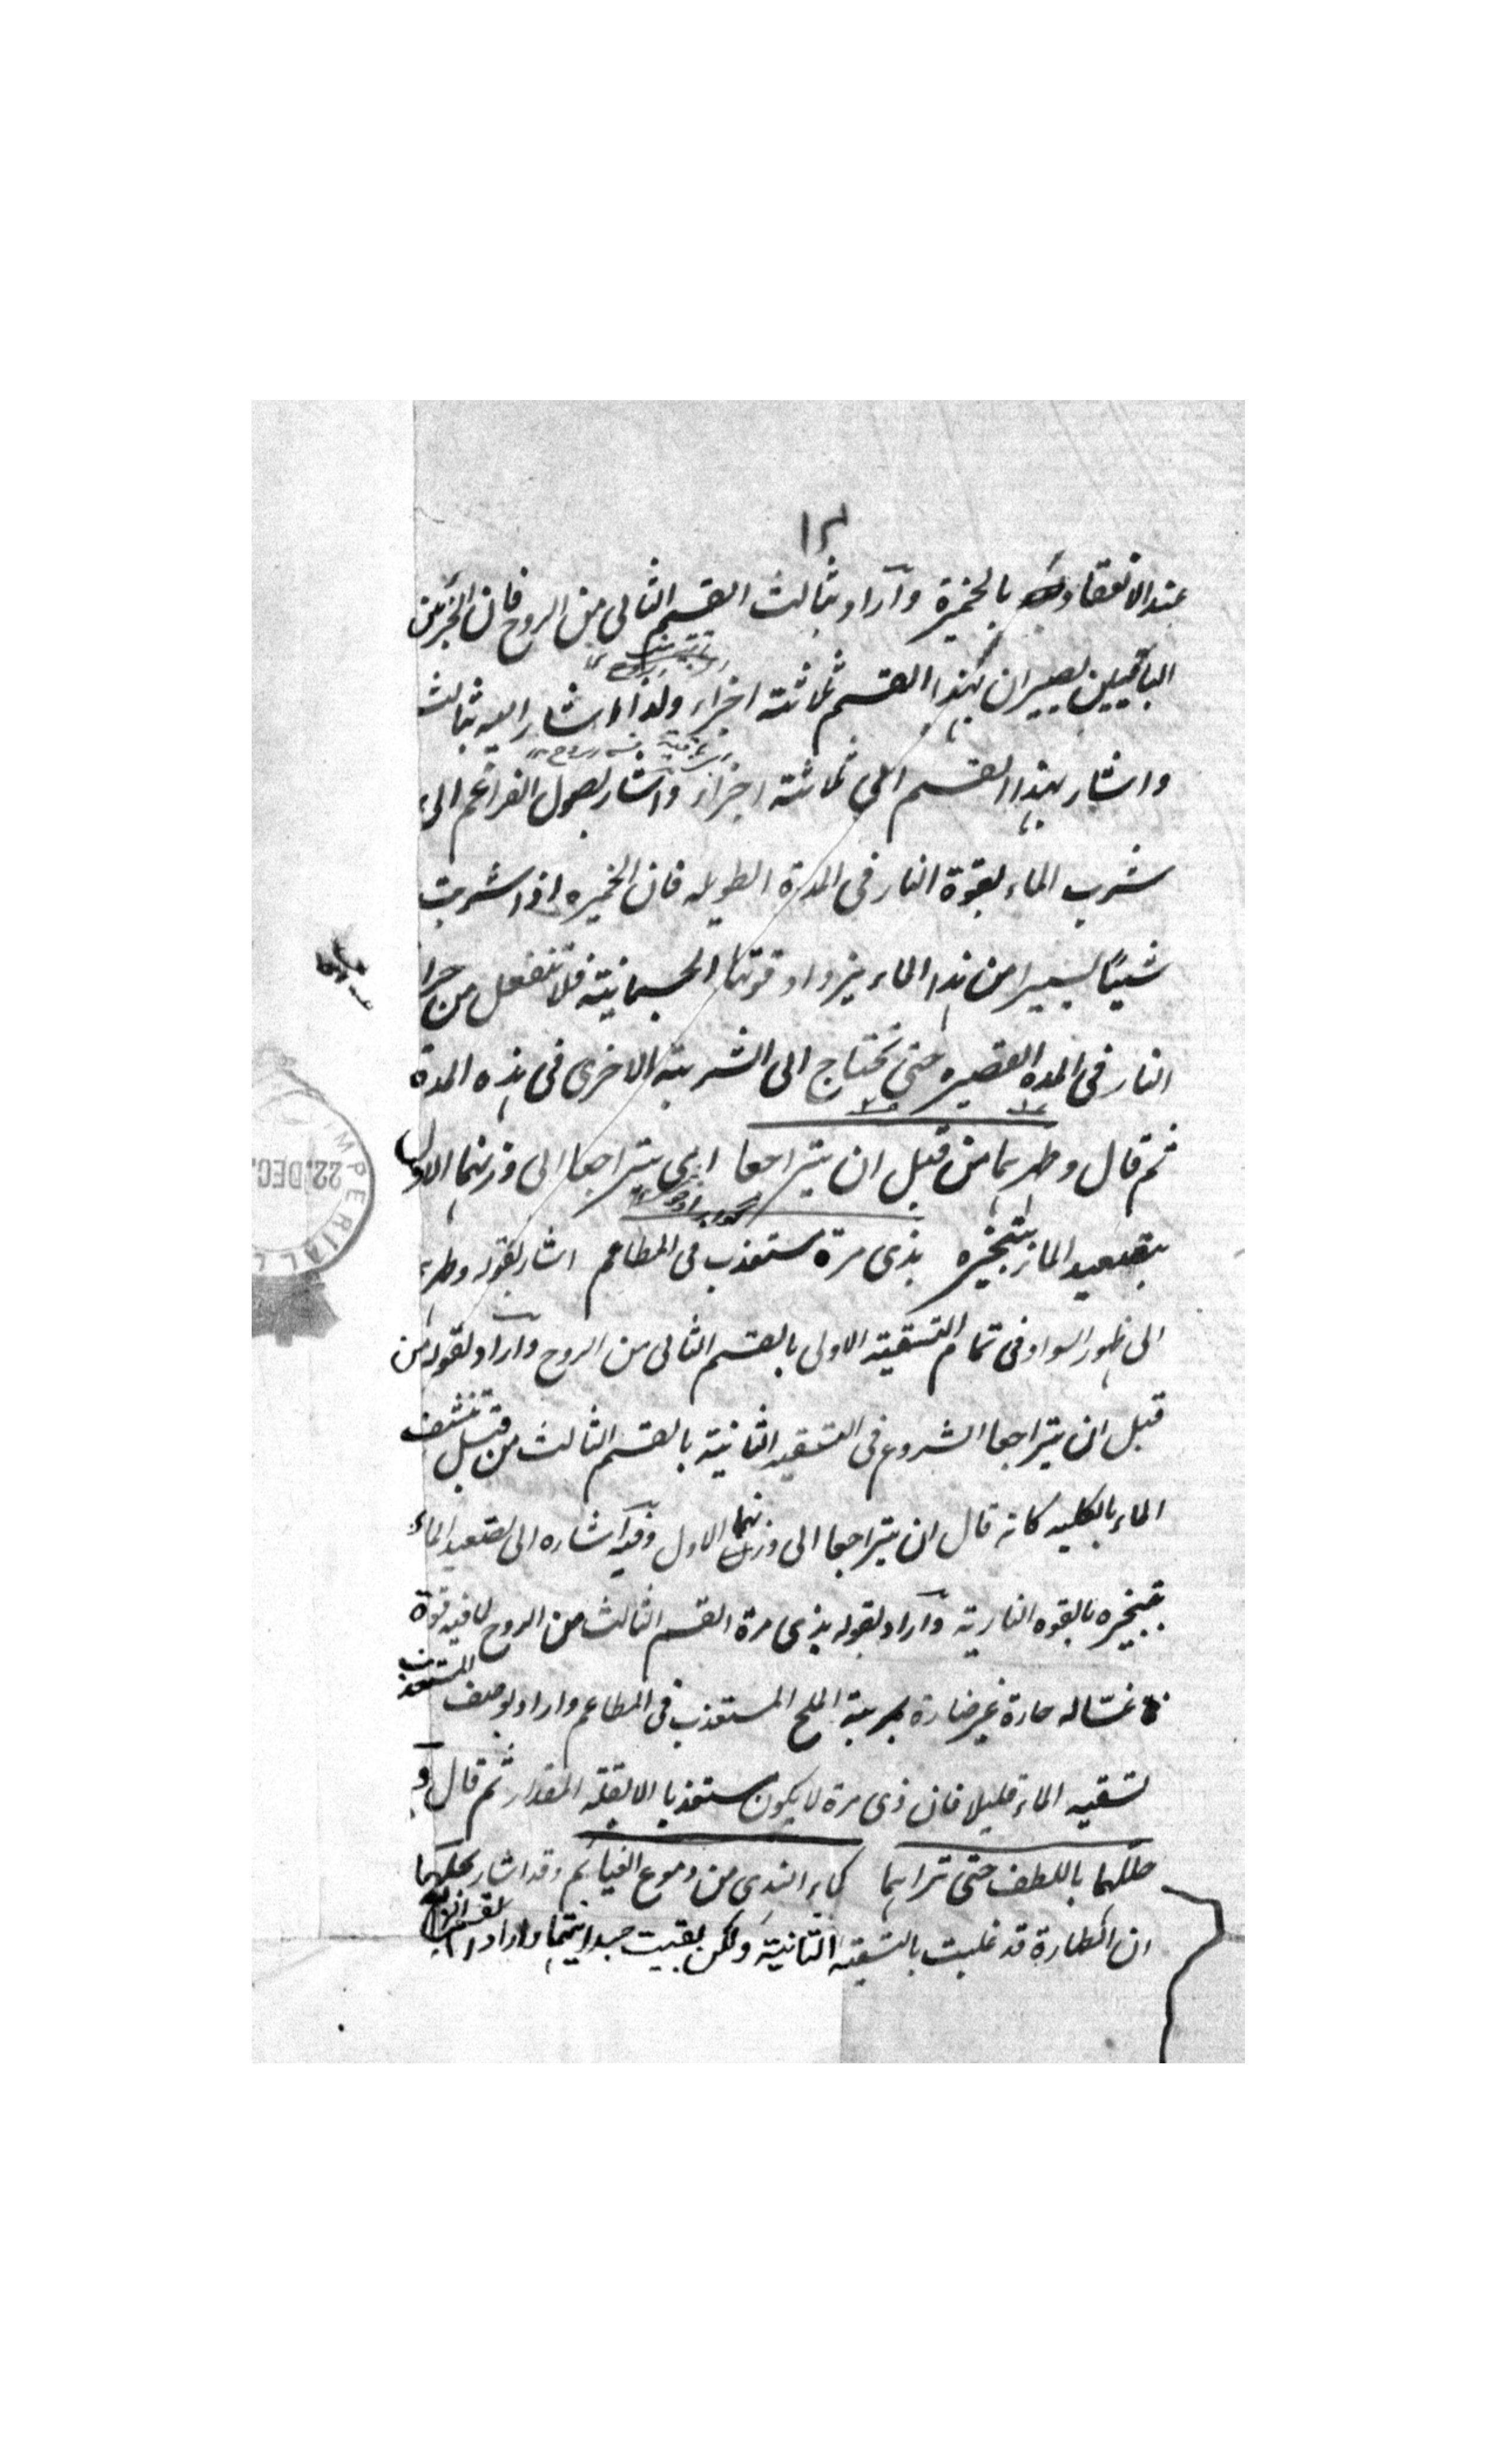 ١٣
عند الانعقاد بالخميرة وآراد بثالث القسم الثالى من الروح فان الجزئين
الباقيين يصيران بهذا القسم ثلاثة اجزاء ولذا اشار اليه بثالث
واشار بهذا القسم الى ثلاثة اجزاء واشار بصمول الفراعم الى
شرب الماء بقوة النار فى المدة الطويله فان الخميره اذا شربت
شيئًا يسيرا من هذا الماء يزداد قوتها الجسمانية فلا تنفعل من حرا
النار فى المده القصيره حتى تحتاج الى الشربة الاخرى فى هذه المدة
ثم قال وطربما من قبل ان يتراجعا اى يتراجعا الى وزنهما الاول
بتصعيد الماء بتبخيره بذى مرة مستعذب فى المطاعم اشار بقوله وطربما
الى ظهور السواد فى تمام التسقية الاولى بالقسم الثالى من الروح وآراد بقوله من
قبل ان يتراجعا الشروع فى التسقيه الثانية بالقسم الثالث من قبل تنشف
الماء بالكليه كانه قال ان يتراجعا الى وزنهما الاول وفيه آشاره الى تصعيد الماء
بتبخيره بالقوه النارية وآراد بقوله بذى مرة القسم الثالث من الروح لما فيه قوة
غساله حارة غير ضارة بمرتبة الملح المستعذب فى المطاعم واراد بوصف المستعذب
تسقيه الماء قليلا فان ذى مرة لا يكون مستعذبا الا بقلة المقدار ثم قال و
حللهما باللطف حتى تراهما كماء الندى من دموع الغيائم وقد اشار بحللهما
ان الطهارة قد غلبت بالتسقيه الثانية ولكن بقيت جسدانيتهما واراد
IMPERIAL L
22. DEC.